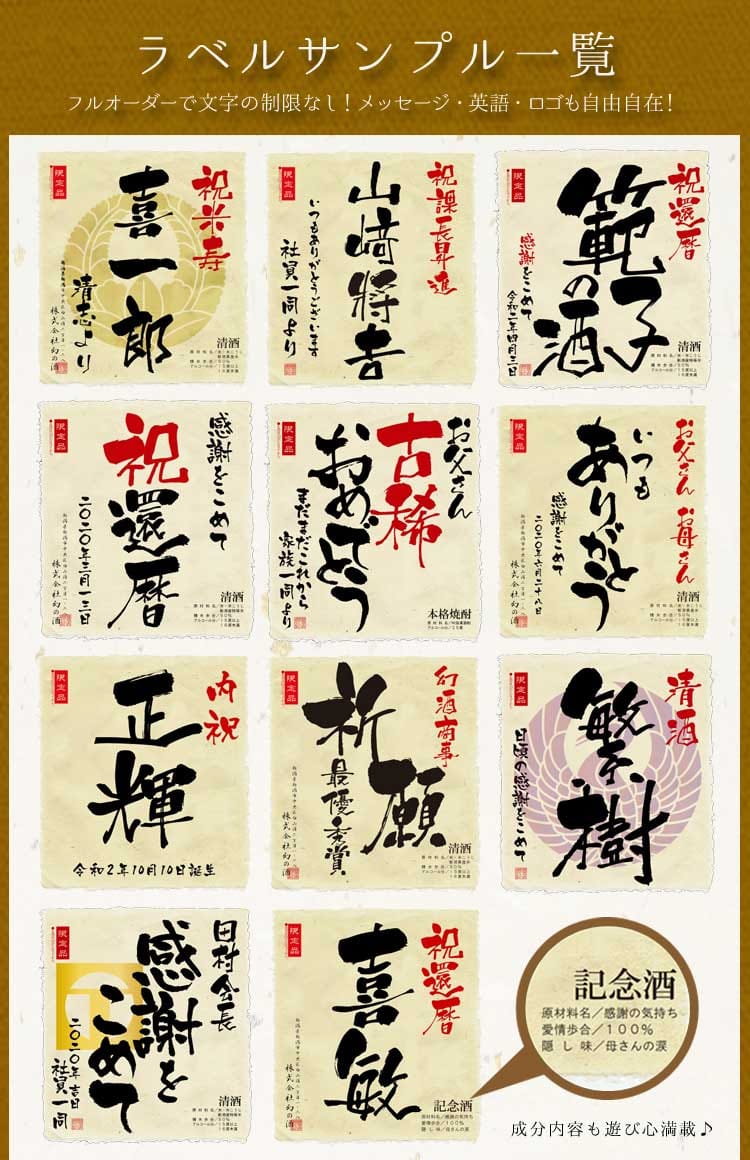 ラベルサンプル一覧
フルオーダーで文字の制限なし！メッセージ・英語・ロゴも自由自在！
限定品
祝米寿
喜一郎
清志より
株式会社幻の酒
清酒
限定品
祝課長昇進
山﨑将吉
いつもありがとうございます
社員一同より
限定品
祝還暦
範子の酒
感謝をこめて
令和二年四月三日
清酒
限定品
感謝をこめて
祝還暦
二〇二〇年三月一三日
株式会社幻の酒
清酒
限定品
お父さん
古稀
おめでとう
まだまだこれから
家族一同より
本格焼酎
限定品
お父さん お母さん
いつも
ありがとう
感謝をこめて
二〇二〇年六月二十八日
株式会社幻の酒
清酒
限定品
内祝
正輝
令和2年10月10日誕生
限定品
幻酒商事
祈願
最優秀賞
株式会社幻の酒
清酒
限定品
清酒
繁樹
日頃の感謝をこめて
限定品
田村会長
感謝を
こめて
二〇二〇年吉日
社員一同
清酒
限定品
祝還暦
喜敏
株式会社幻の酒
記念酒
原材料名／感謝の気持ち
愛情歩合／100％
隠し味／母さんの涙
記念酒
原材料名／感謝の気持ち
愛情歩合／100％
隠し味／母さんの涙
成分内容も遊び心満載♪